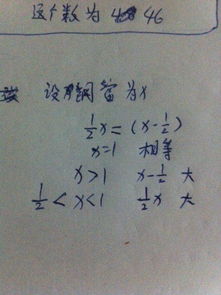 这个数为 46
设 为x
½x=(x-½)
x=1 相等
x>1 x-½ 大
½<x<1 ½x 大